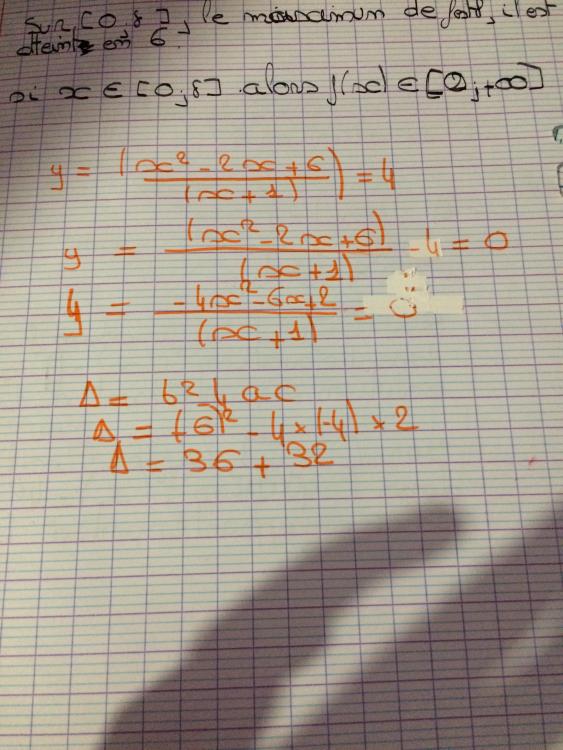 Sur [0,8], le maximum de f est , il est
atteint en 6.
si x ∈ [0;8] alors f(x) ∈ [0;+∞]
y = (x² - 2x + 6 / (x + 1)) = 4
y = (x² - 2x + 6) / (x + 1) - 4 = 0
y = -4x² - 6x + 2 / (x + 1) = 0
Δ = b² - 4ac
Δ = (6)² - 4 × (-4) × 2
Δ = 36 + 32